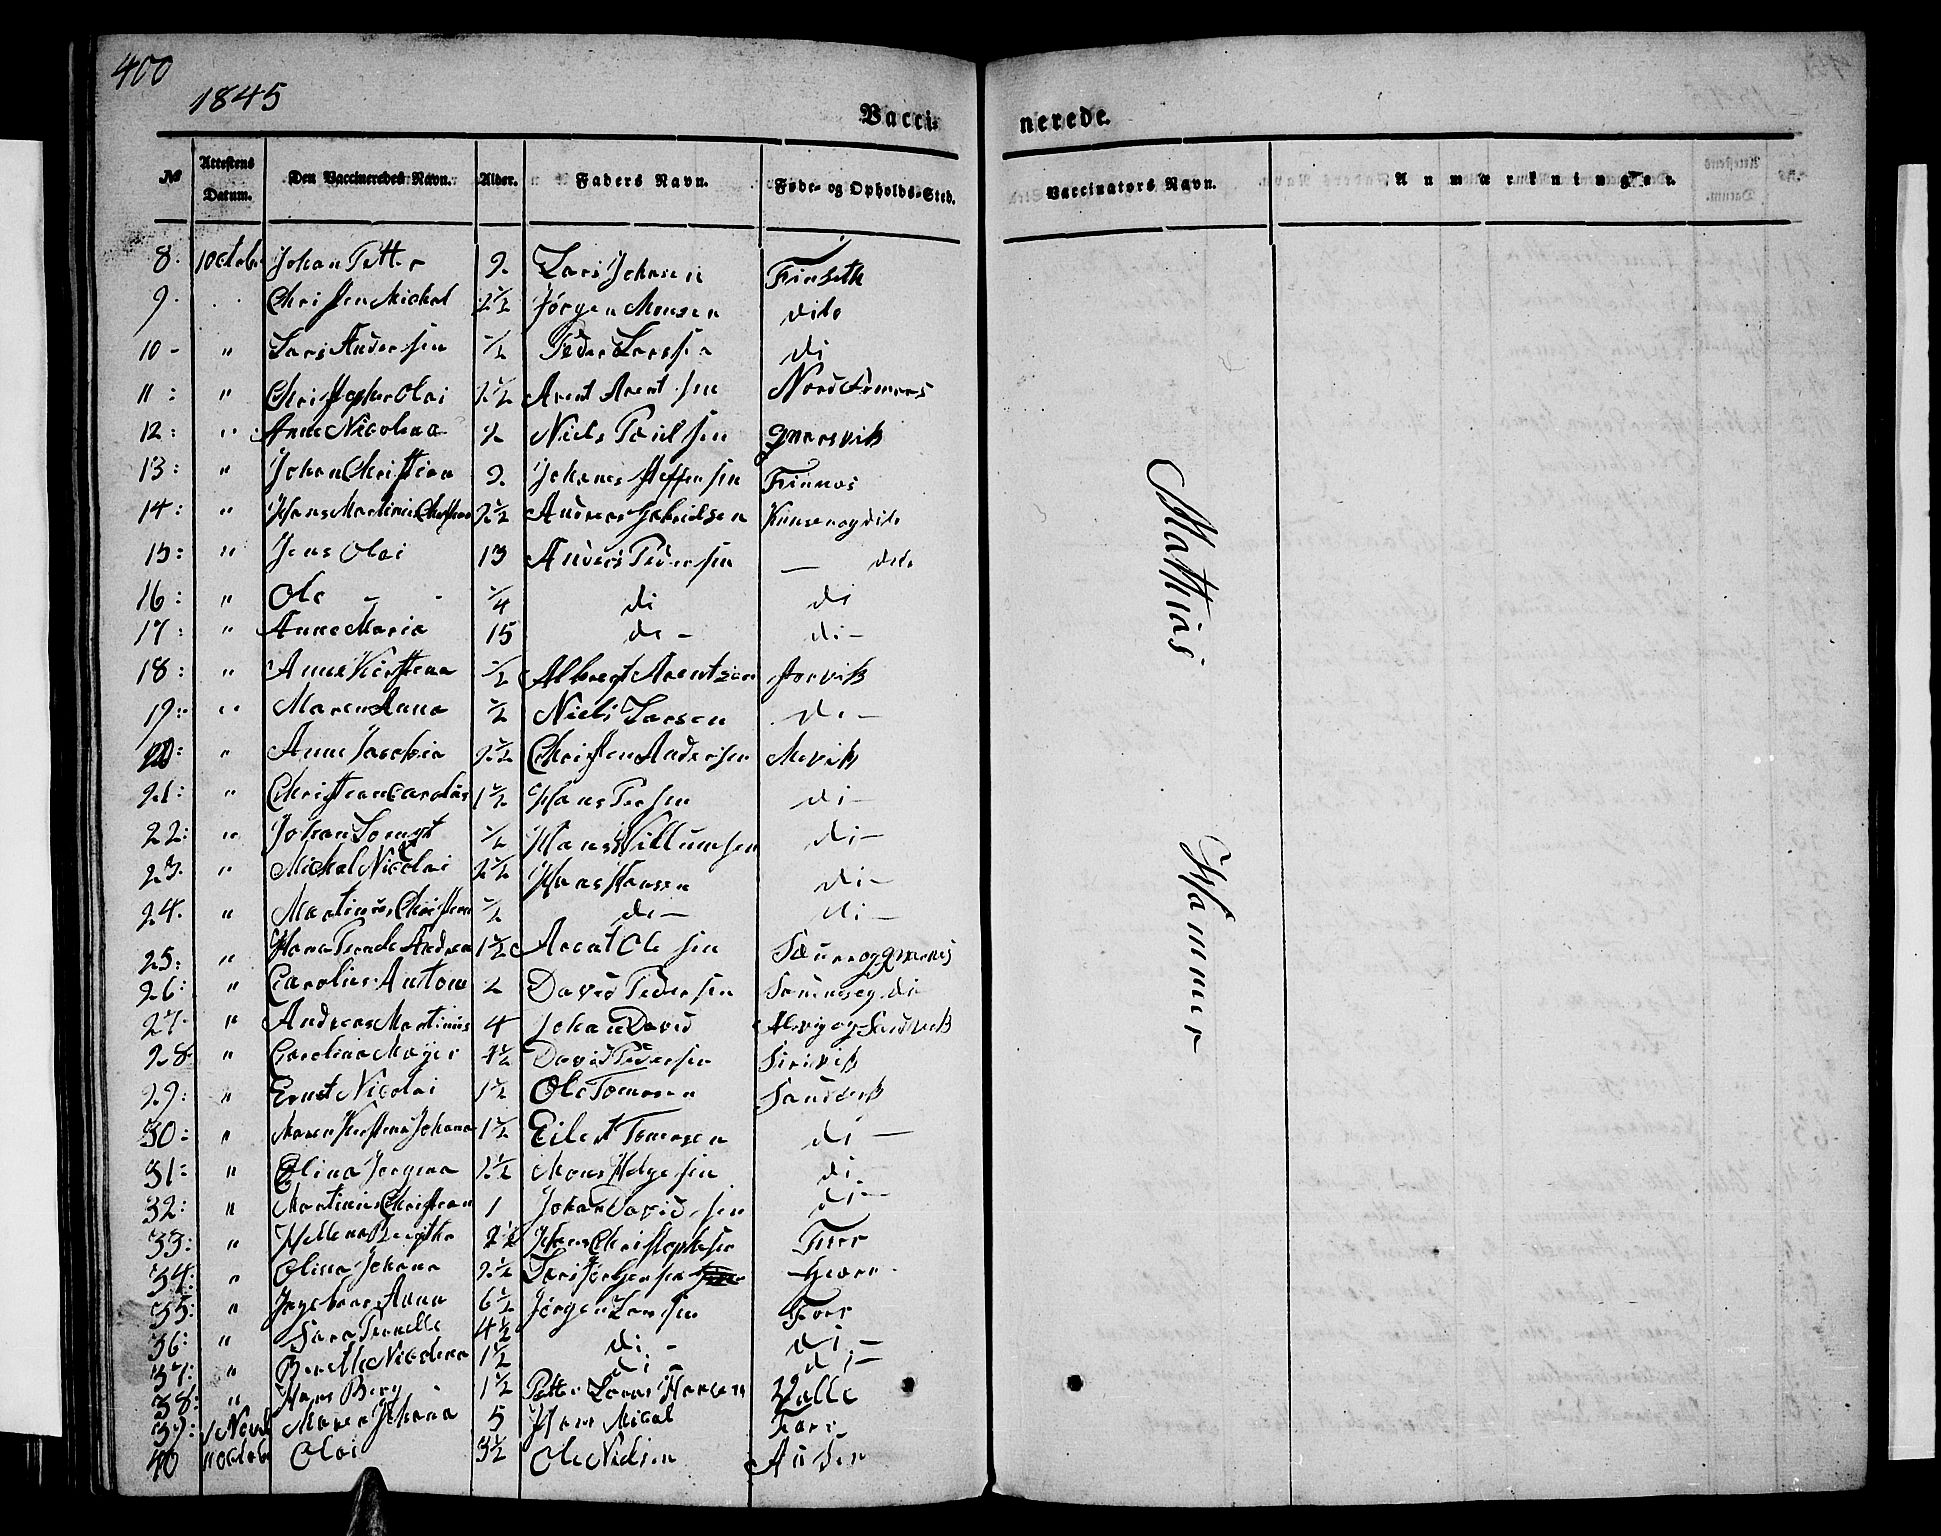 400
1845
Vacci- nerede.
No Attestens Datum. Den Vaccineredes Navn. Alder. Faders Navn. Føde- og Opholds-Sted. Vaccinators Navn. Anmærkninger.
8. 1 Octob Johan Petter 2. Lars Johnsen Finseth
9. Christen Michel 2½ Jörgen Monsen dito
10 - " Lars Andersen ½ Peder Larssen di
11: " Christopher Olai 2½ Arent Arentsen
12: " Anne Nicolina 2 Niels Poulsen
13: " Johan Christian 2. Johanes Steffensen Finnnes
14: " Hans Martinus Christian 2½ Andreas Gabrielsen
15: " Jens Olai 13 Anders Pedersen — dito
16: " Ole - - ¼ di di
17: " Anne Maria 15 di - di -
18: " Anne Kirstena ½ Albregt Arentsen Storvik
19: " Maren Anna ½ Niels Larsen di -
20: " Anne Jacobia 2½ Christen Andersen Mevik
21: " Christian Carolus 1½ Hans Persen di -
22: " Johan ½ Hans Villumsen di -
23. " Michel Nicolai 2½ Hans Hansen di -
24. " Martinus Christian ½ di - di -
25: " Hans Andrea 1½ Arent Olesen
26: " Carolius Anton 2 David Pedersen
27. " Andreas Martinus 4 Johan David og Sandvik
28 " Carolina 4½ David Pedersen
29: " Ernst Nicolai 1½ Ole Tomesen Sandvik
30: " Maren Kirstena Johana 1½ Eilert Tomesen di -
31: " Elina Jorgina 2½ Mons Helgesen di
32: " Martinus Christian 1 Johan Davidsen di -
33: " Hellena Birgitha 2½ Hans Christophersen
34: " Olina Johana 2½ Lars
35: " Ingebor Anna 6½ Jörgen Larsen Fore
36: " Sara Pernelle 4½ di - di -
37: " Berthe Nicolina 1½ di di -
38: " Hans Berg 1½ Petter Hansen Valle
39: 1 Novb Maren Johana 5 Hans Mical
40 11 Octob Olai 3½ Ole Nielsen
Matthias Hammer